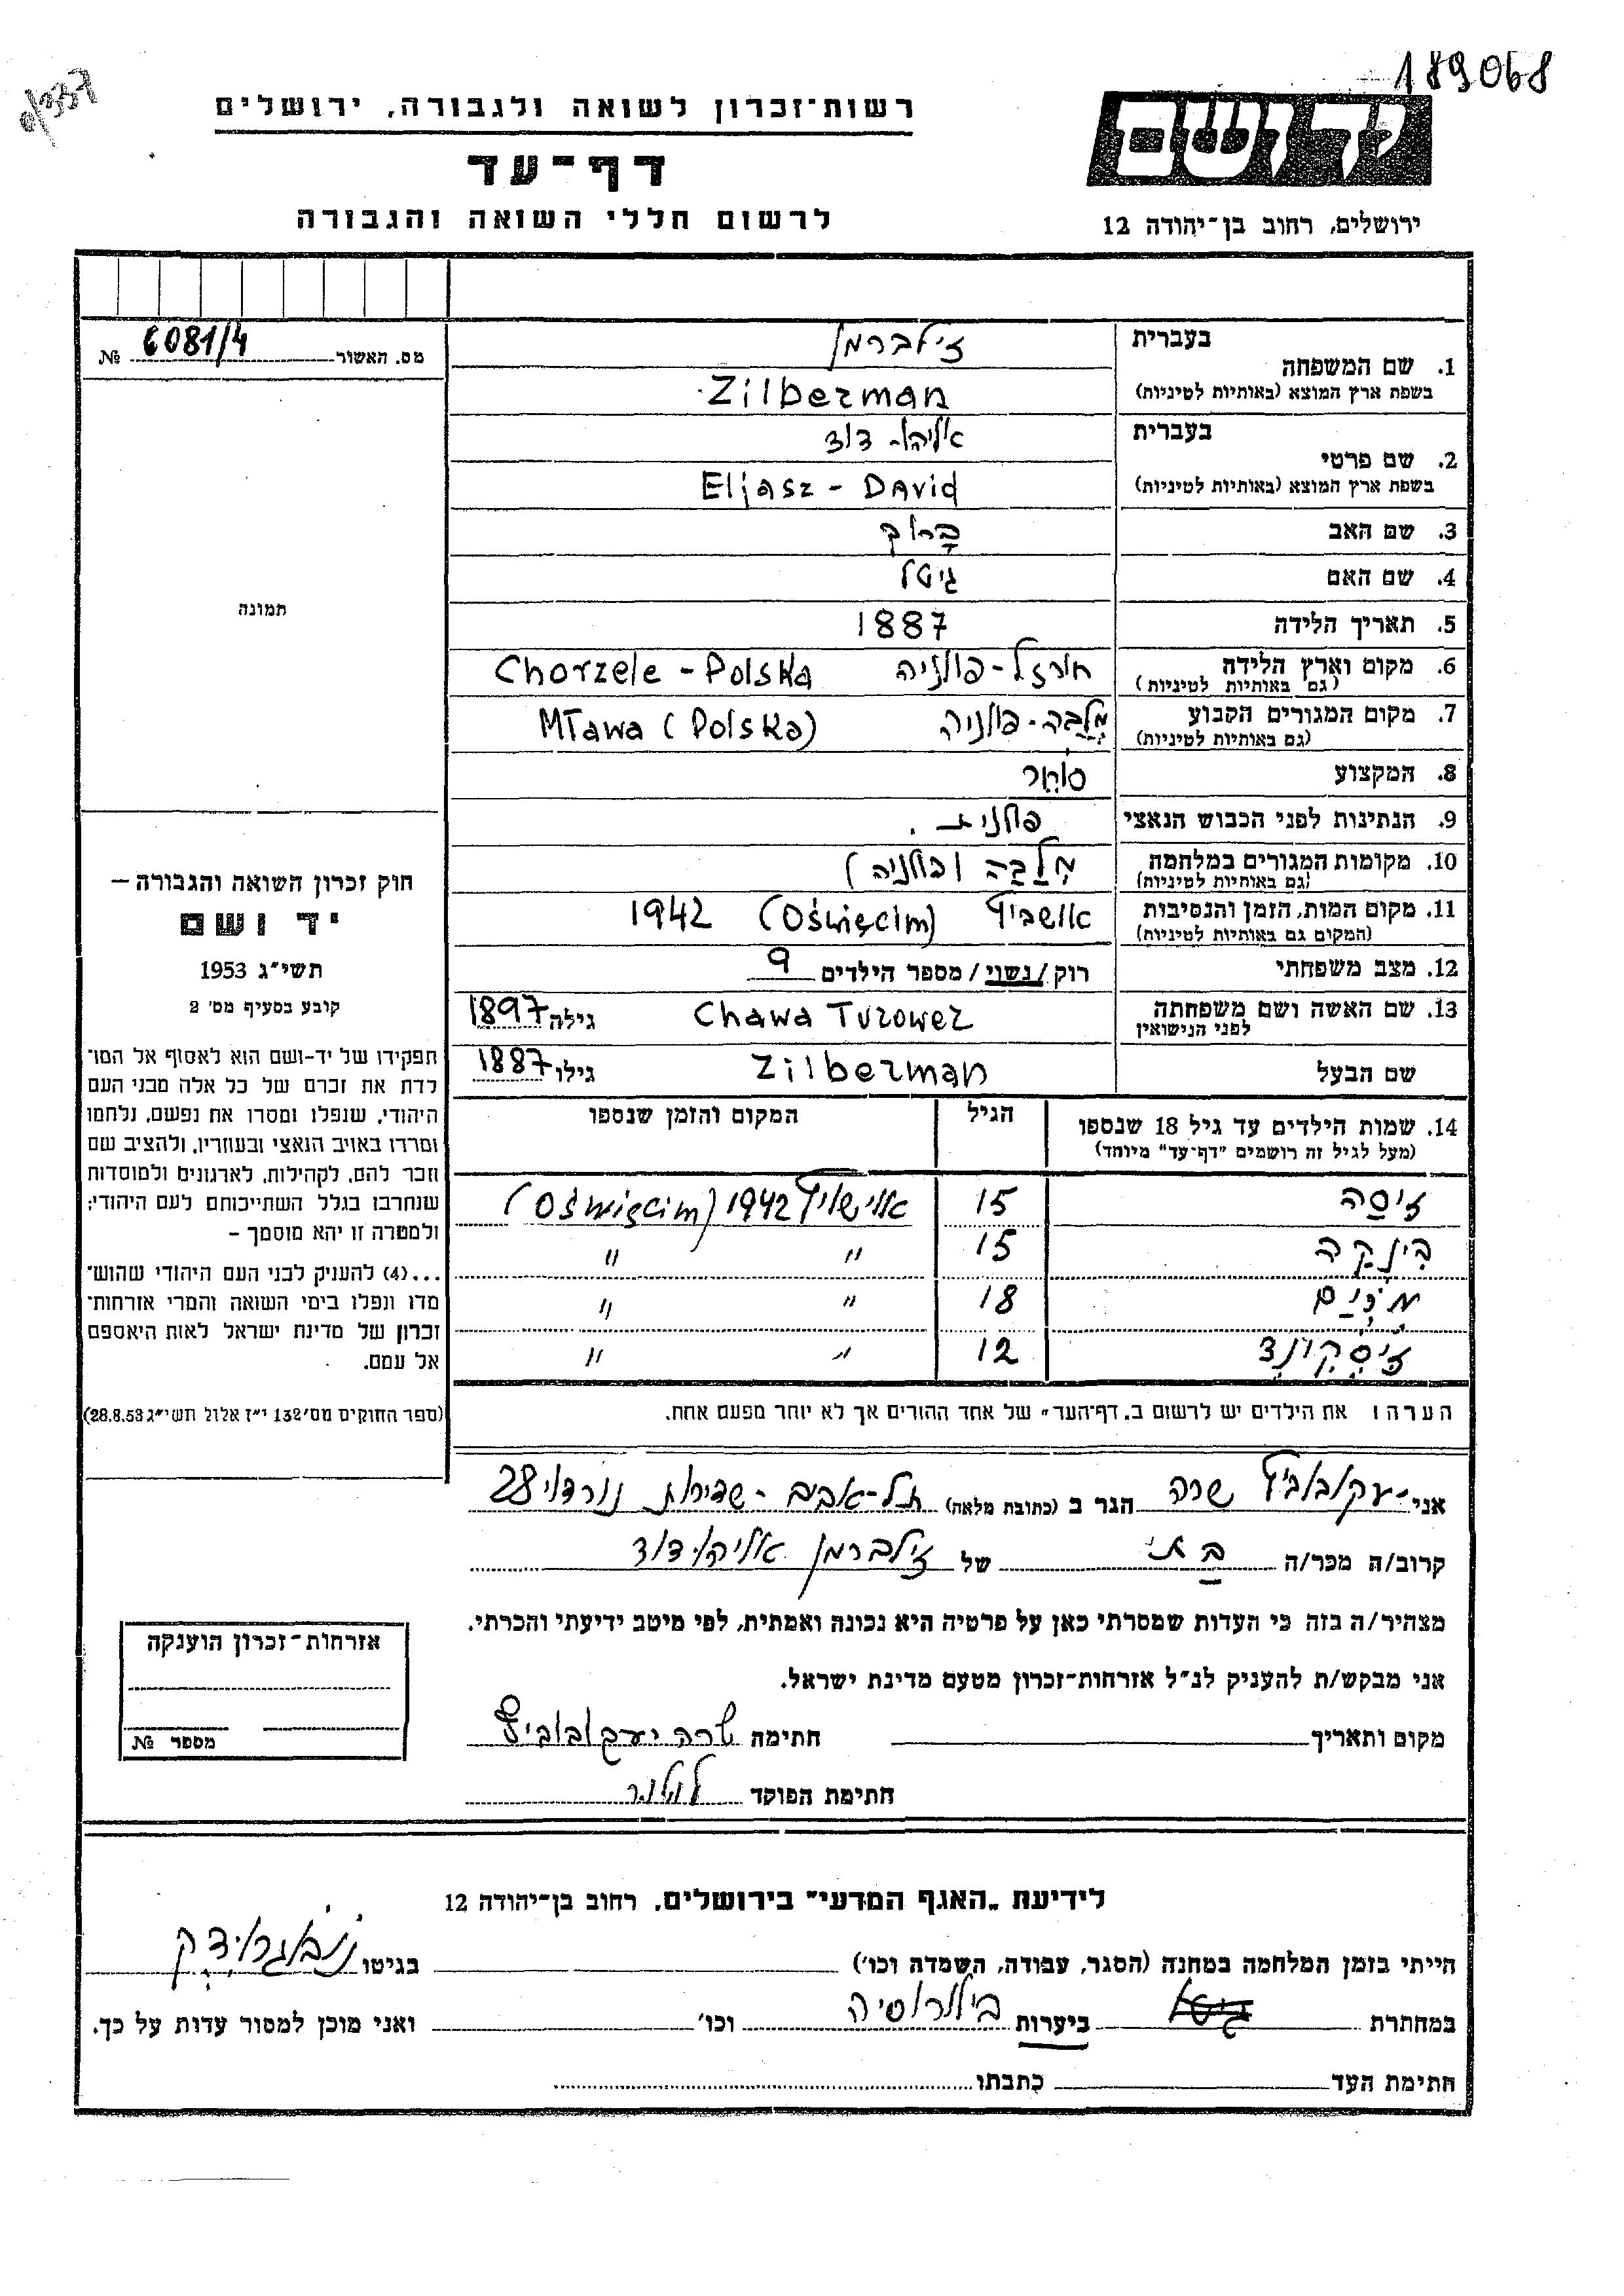 189068
0/337
רשות־זכרון לשואה ולגבורה, ירושלים
דף־עד
לרשום חללי השואה והגבורה
יד ושם
ירושלים, רחוב בן־יהודה 12
מס. האשור 6081/4 №
תמונה
חוק זכרון השואה והגבורה —
יד ושם
תשי״ג 1953
קובע בסעיף מס׳ 2
תפקידו של יד-ושם הוא לאסוף אל המו־
לדת את זכרם של כל אלה מבני העם
היהודי, שנפלו ומסרו את נפשם, נלחמו
ומרדו באויב הנאצי ובעוזריו, ולהציב שם
וזכר להם, לקהילות, לארגונים ולמוסדות
שנחרבו בגלל השתייכותם לעם היהודי;
ולמטרה זו יהא מוסמך –
...(4) להעניק לבני העם היהודי שהוש־
מדו ונפלו בימי השואה והמרי אזרחות־
זכרון של מדינת ישראל לאות היאספם
אל עמם.
(ספר החוקים מס׳ 132 י״ז אלול תשי״ג 28.8.53)
1. שם המשפחה בעברית זילברמן
בשפת ארץ המוצא (באותיות לטיניות) Zilberman
2. שם פרטי בעברית אליהו - דוד
בשפת ארץ המוצא (באותיות לטיניות) Eljasz - David
3. שם האב ברוך
4. שם האם גיטל
5. תאריך הלידה 1887
6. מקום וארץ הלידה (גם באותיות לטיניות) חורזל - פולניה Chorzele - Polska
7. מקום המגורים הקבוע (גם באותיות לטיניות) מלבה - פולניה Mława (Polska)
8. המקצוע סוחר
9. הנתינות לפני הכבוש הנאצי פולנית.
10. מקומות המגורים במלחמה (גם באותיות לטיניות) מלבה (פולניה)
11. מקום המות, הזמן והנסיבות (המקום גם באותיות לטיניות) אושביץ (Oświęcim) 1942
12. מצב משפחתי רוק/נשוי/מספר הילדים 9
13. שם האשה ושם משפחתה לפני הנישואין Chawa Turower גילה 1897
שם הבעל Zilberman גילו 1887
14. שמות הילדים עד גיל 18 שנספו הגיל המקום והזמן שנספו
(מעל לגיל זה רושמים ״דף־עד״ מיוחד)
זיסה 15 1942 (Oświęcim)
בינקה 15 ״ ״
מרים 18 ״ ״
12 ״ ״
הערה: את הילדים יש לרשום ב״דף־העד״ של אחד ההורים אך לא יותר מפעם אחת.
אני יעקובוביץ שרה הגר ב (כתובת מלאה) תל-אביב - שדירות נורדוי 28
קרוב/ה מכר/ה בתו של זילברמן אליהו דוד
מצהיר/ה בזה כי העדות שמסרתי כאן על פרטיה היא נכונה ואמתית, לפי מיטב ידיעתי והכרתי.
אני מבקש/ת להעניק לנ״ל אזרחות־זכרון מטעם מדינת ישראל.
מקום ותאריך חתימה שרה יעקובוביץ
חתימת הפוקד
אזרחות־זכרון הוענקה
מספר №
לידיעת ״האגף המדעי״ בירושלים, רחוב בן־יהודה 12
הייתי בזמן המלחמה במחנה (הסגר, עבודה, השמדה וכו׳) בגיטו נובוגרודק
במחתרת ביערות בילורוסיה וכו׳ ואני מוכן למסור עדות על כך.
חתימת העד כתבתו